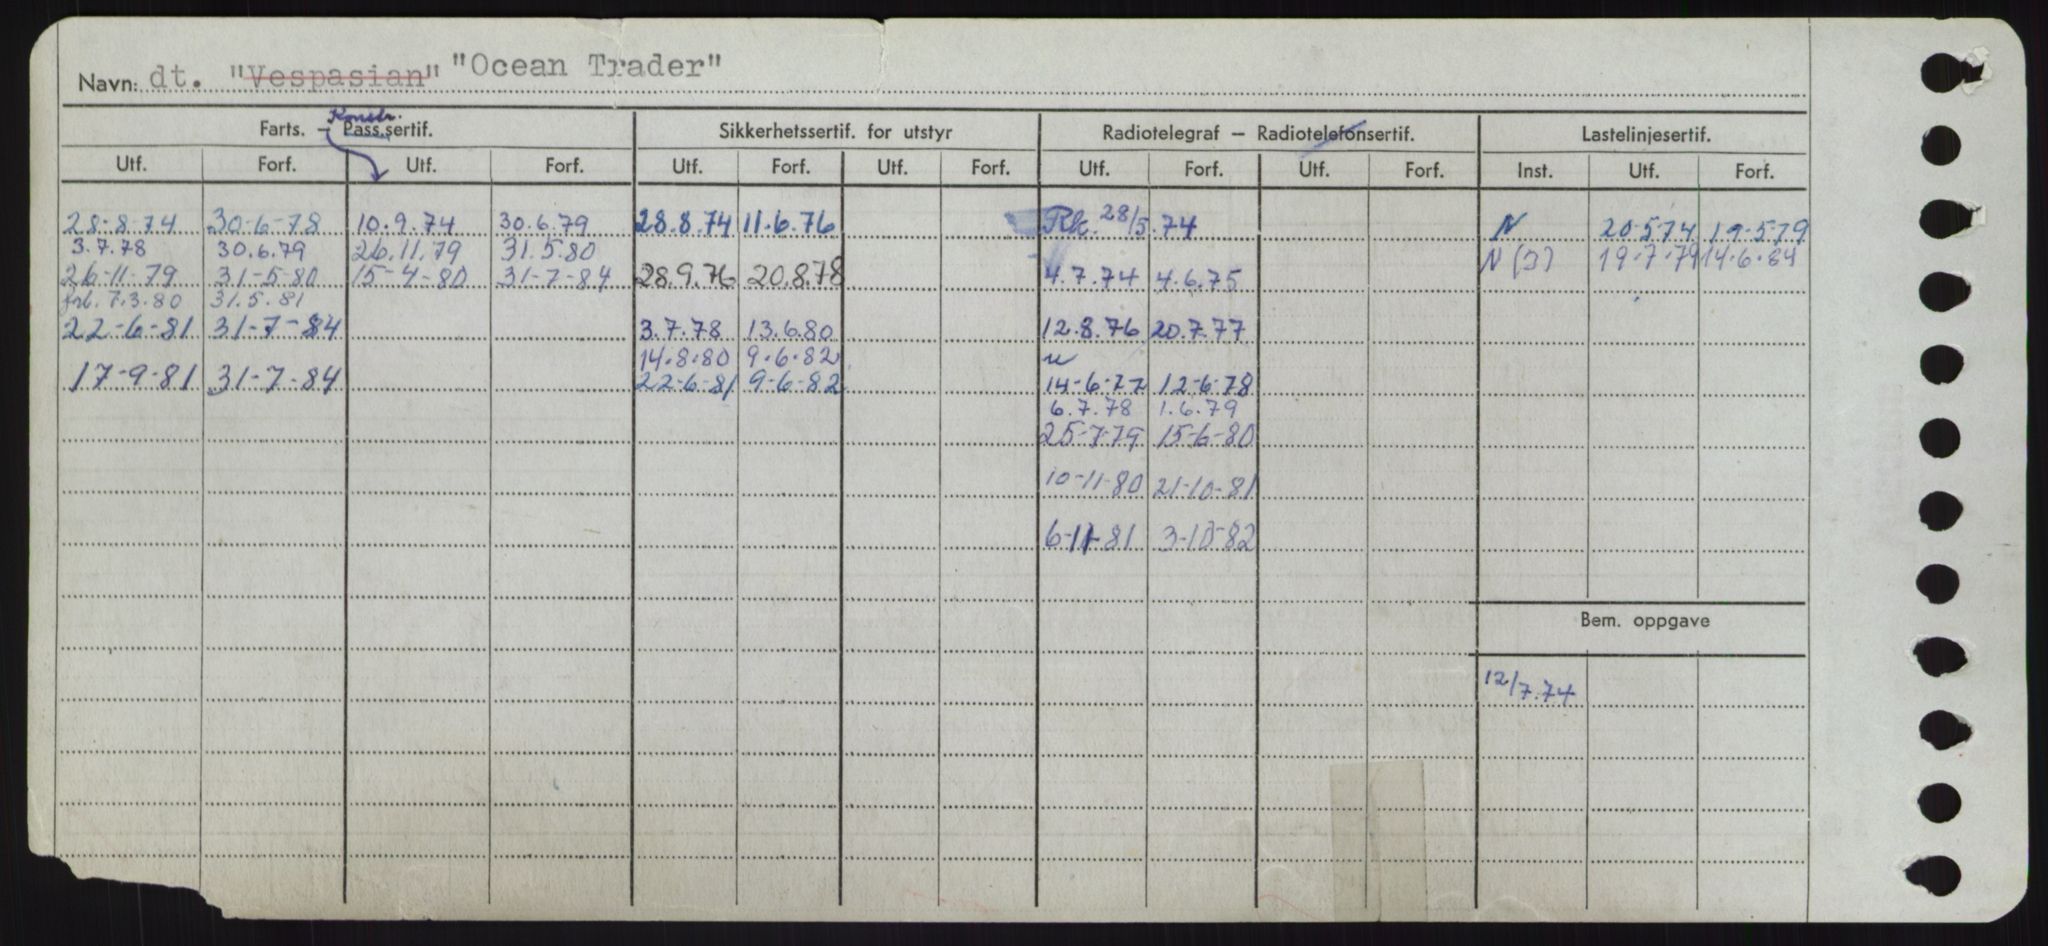 Navn: dt. "Vespasian" "Ocean Trader"
Konstr.
Farts. — Pass.sertif. Sikkerhetssertif. for utstyr Radiotelegraf — Radiotelefonsertif. Lastelinjesertif.
Utf. Forf. Utf. Forf. Utf. Forf. Utf. Forf. Utf. Forf. Utf. Forf. Inst. Utf. Forf.
28-8-74 30-6-78 10.9.74 30.6.79 28.8.74 11.6.76 Rk. 28/5.74 N 20-5-74 19-5-79
3.7.78 30.6.79 26.11.79 31.5.80 N (J) 19.7.79 14.6.84
26-11-79 31-5-80 15-4-80 31-7-84 28.9.76 20.8.78 4.7.74 4.6.75
frl. 7.3.80 31.5.81
22-6-81 31-7-84 3.7.78 13.6.80 12.8.76 20.7.77
14.8.80 9.6.82
17-9-81 31-7-84 22-6-81 9-6-82 14-6-77 12-6-78
6.7.78 1.6.79
25-7-79 15-6-80
10-11-80 21-10-81
6-11-81 3-10-82
Bem. oppgave
12/7.74